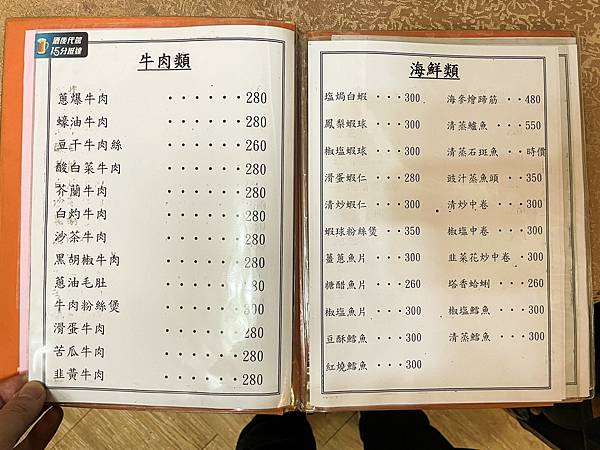 酒後代駕
15分抵達
牛肉類
蔥爆牛肉 ······280
蠔油牛肉 ······280
豆干牛肉絲 ······260
酸白菜牛肉 ······280
芥蘭牛肉 ······280
白灼牛肉 ······280
沙茶牛肉 ······280
黑胡椒牛肉 ······280
蔥油毛肚 ······280
牛肉粉絲煲 ······300
滑蛋牛肉 ······280
苦瓜牛肉 ······280
韭黃牛肉 ······280
海鮮類
塩焗白蝦 ···300
鳳梨蝦球 ···300
椒塩蝦球 ···300
滑蛋蝦仁 ···280
清炒蝦仁 ···300
蝦球粉絲煲 ··350
薑蔥魚片 ···300
糖醋魚片 ···260
椒塩魚片 ···300
豆酥鱈魚 ···300
紅燒鱈魚 ···300
海參燴蹄筋 ··480
清蒸鱸魚 ···550
清蒸石斑魚 ··時價
豉汁蒸魚頭 ··350
清炒中卷 ···300
椒塩中卷 ···300
韭菜花炒中卷 ·300
塔香蛤蜊 ···260
椒塩鱈魚 ···300
清蒸鱈魚 ···300